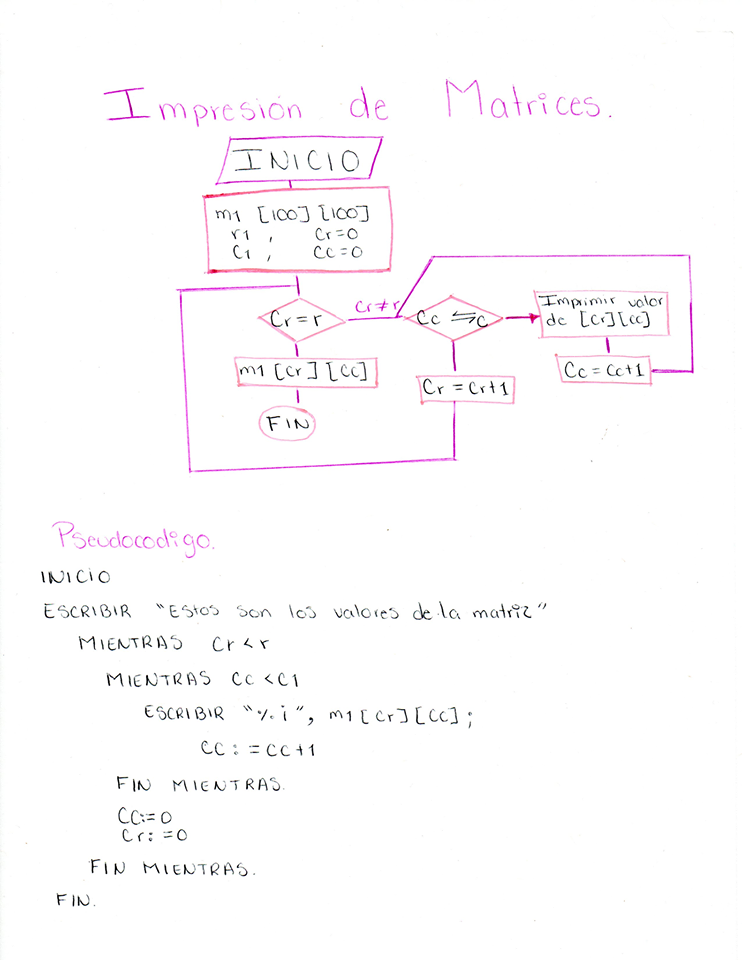 Impresión de Matrices.
INICIO
m1 [100] [100]
r1 , Cr=0
C1 , Cc=0
Cr=r
Cr≠r
Cc ⇋c
Imprimir valor
de [Cr][Cc]
m1 [Cr] [Cc]
Cr =Cr+1
Cc = Cc+1
FIN
Pseudocodigo.
INICIO
ESCRIBIR "Estos son los valores de la matriz"
MIENTRAS Cr<r
MIENTRAS Cc <C1
ESCRIBIR "%i", m1[Cr][Cc];
CC:=CC+1
FIN MIENTRAS.
CC:=0
Cr:=0
FIN MIENTRAS.
FIN.